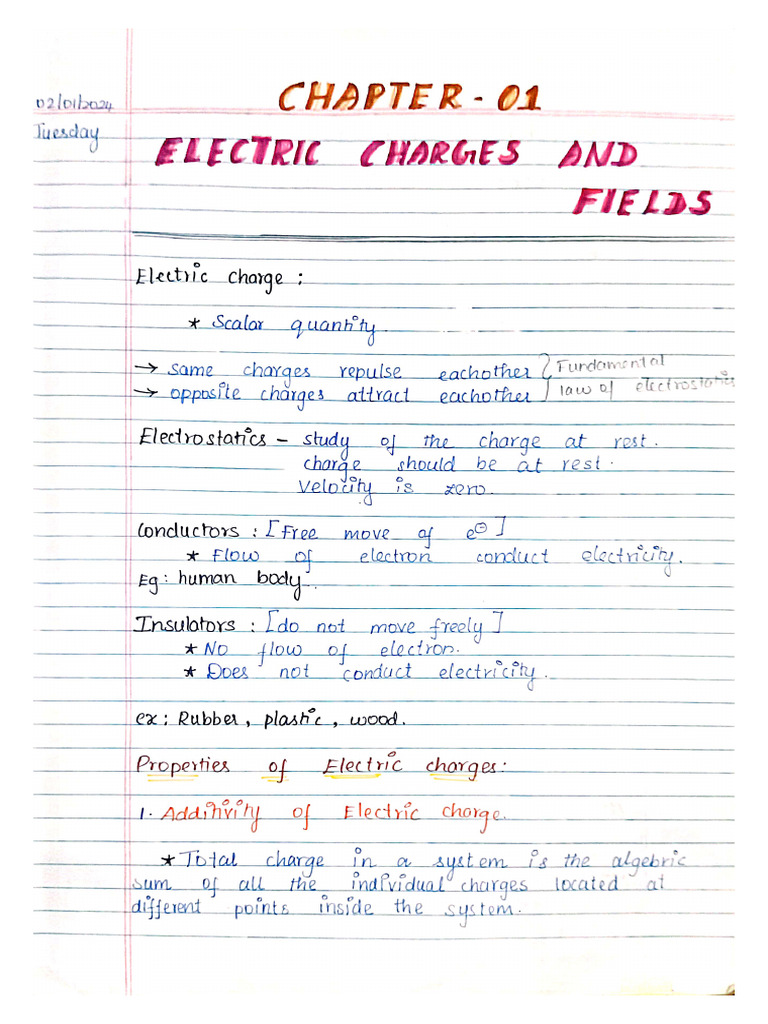 02/01/2024
Tuesday
CHAPTER - 01
ELECTRIC CHARGES AND
FIELDS
Electric charge :
* Scalar quantity
→ same charges repulse eachother } Fundamental
→ opposite charges attract eachother } law of electrostatics
Electrostatics - study of the charge at rest.
charge should be at rest.
Velocity is zero.
Conductors : [Free move of e⊖]
* Flow of electron conduct electricity.
Eg: human body.
Insulators : [do not move freely]
* No flow of electron.
* Does not conduct electricity.
ex: Rubber, plastic, wood.
Properties of Electric charges:
1. Additivity of Electric charge.
* Total charge in a system is the algebric
sum of all the individual charges located at
different points inside the system.